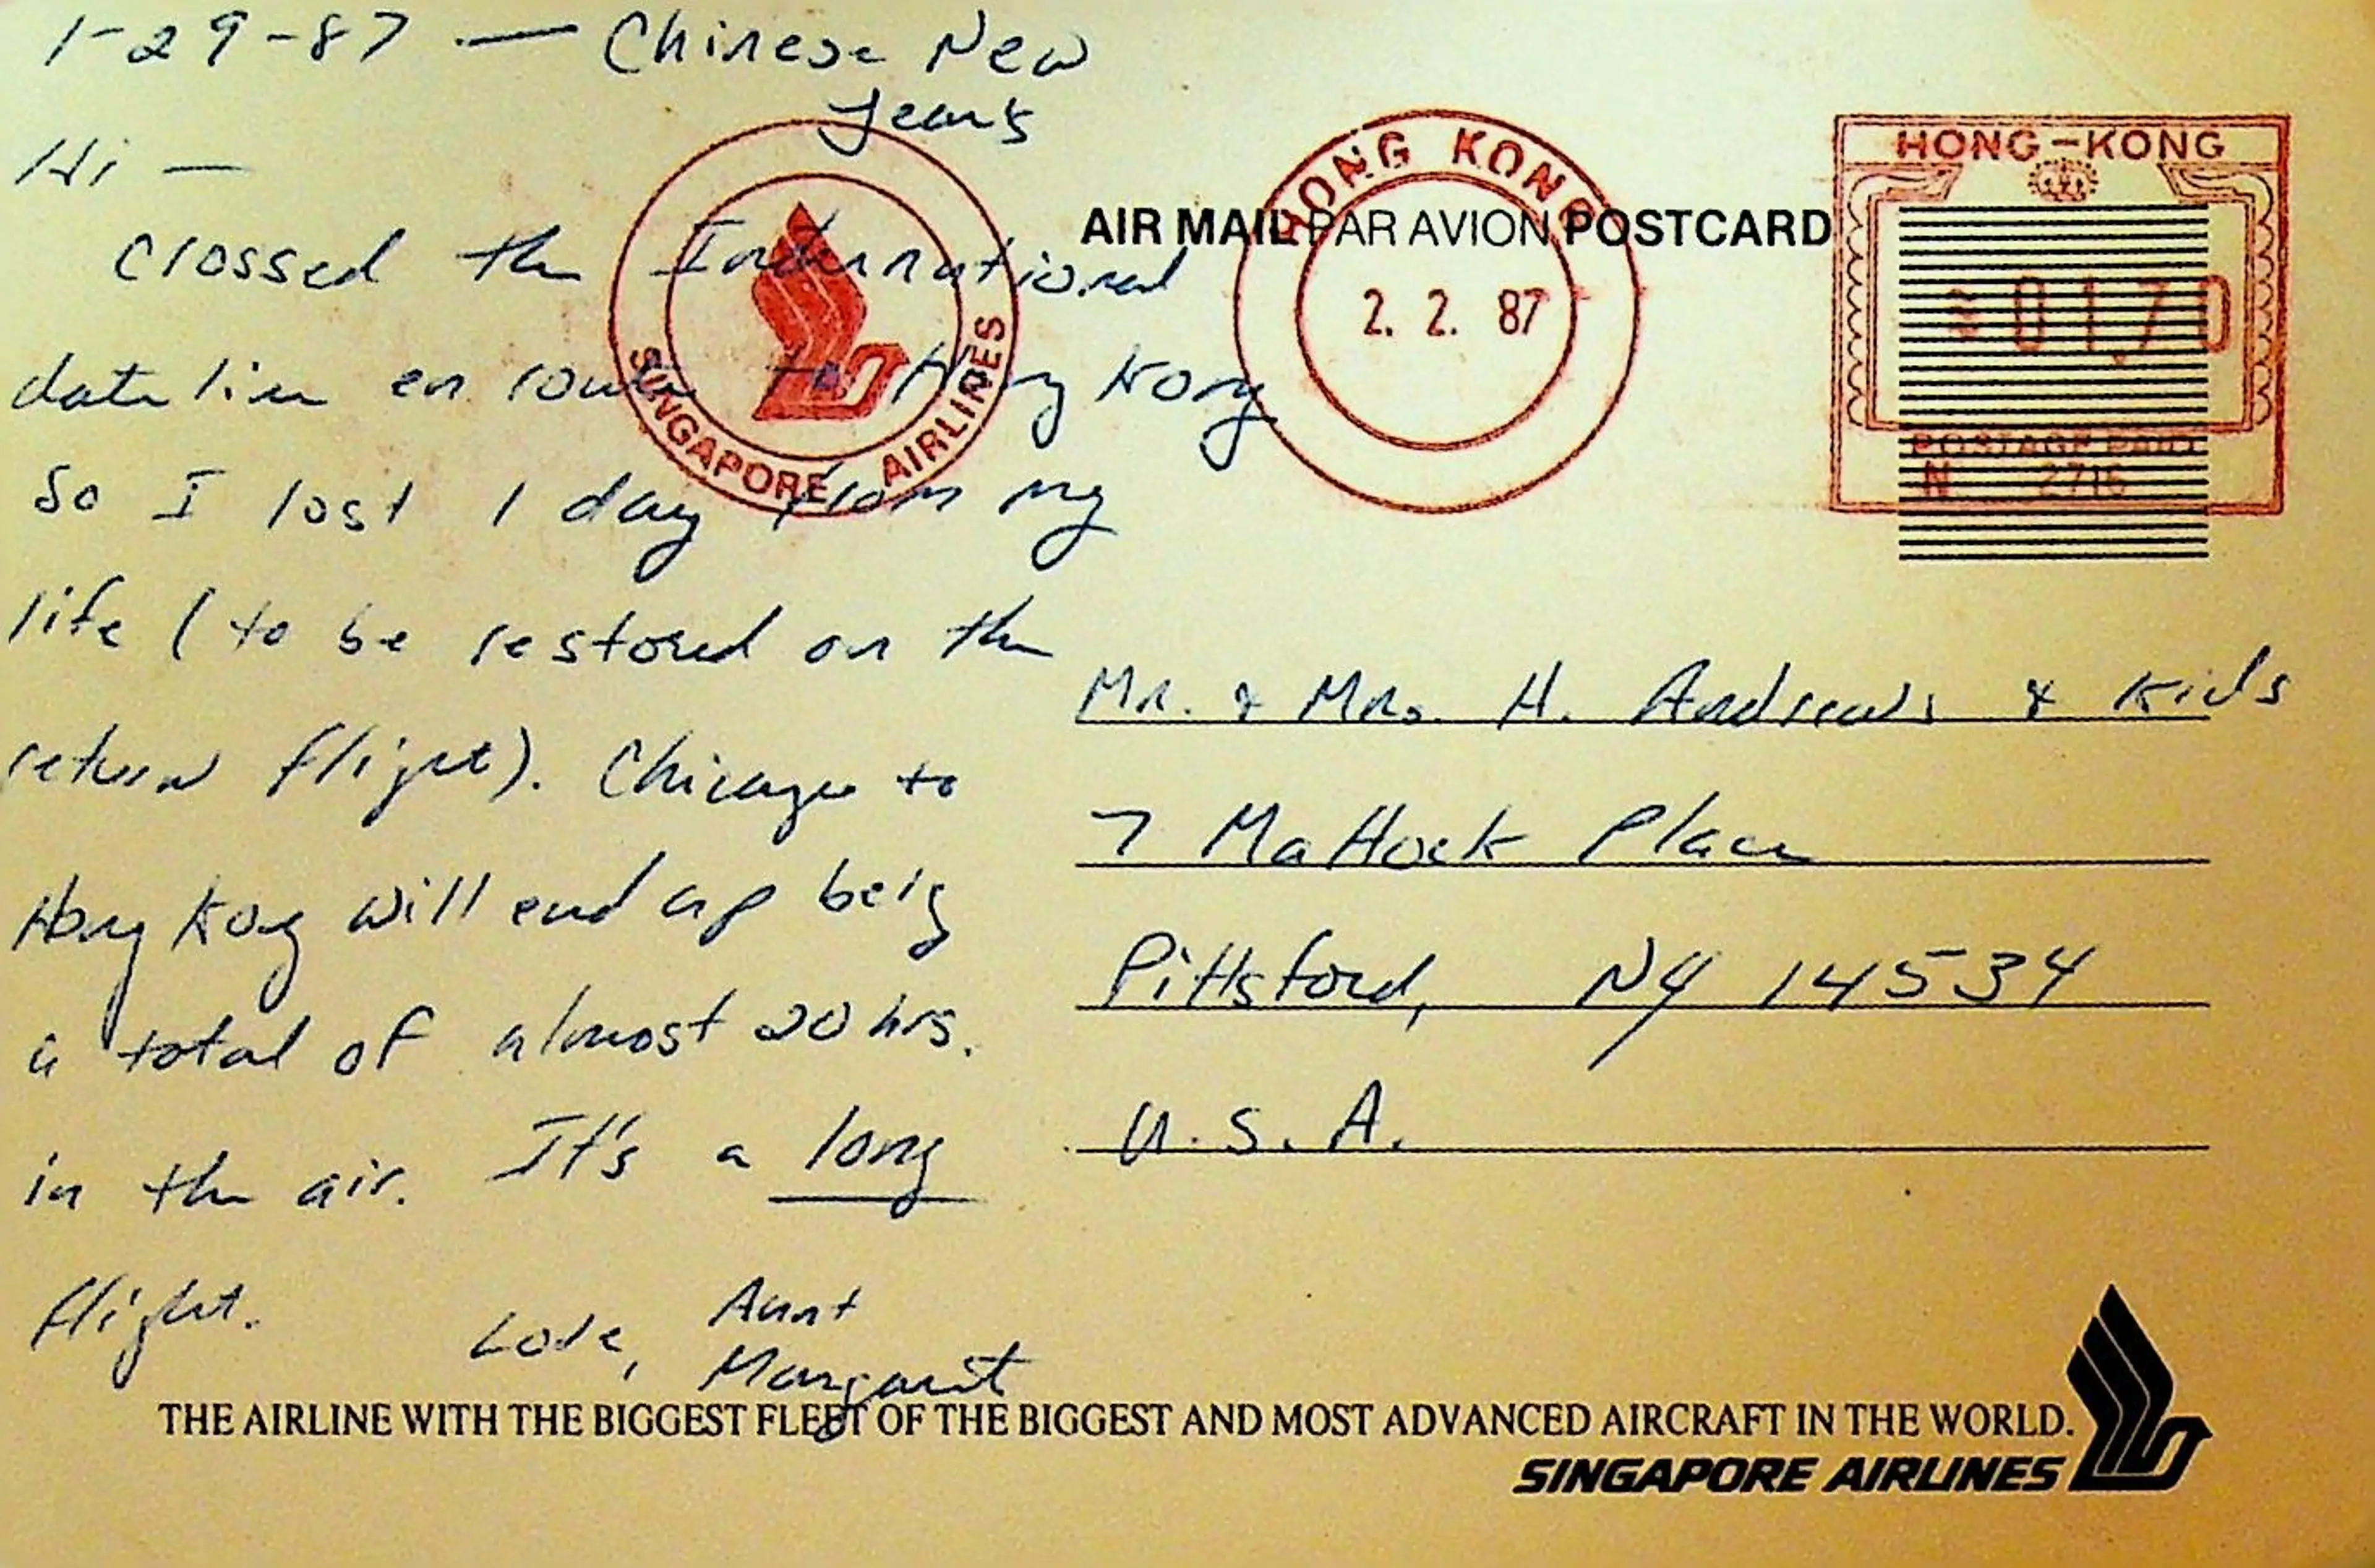 1-29-87 — Chinese New
Years
Hi —
Crossed the International
dateline en route to Hong Kong
So I lost 1 day from my
life (to be restored on the
return flight). Chicago to
Hong Kong will end up being
a total of almost 20 hrs.
in the air. It's a long
flight.
Love, Aunt
Margaret
SINGAPORE AIRLINES
HONG KONG
2. 2. 87
AIR MAIL PAR AVION POSTCARD
HONG-KONG
01,70
POSTAGE PAID
N 2716
Mr. & Mrs. H. Andrews & Kids
7 Mattock Place
Pittsford, NY 14534
U.S.A.
THE AIRLINE WITH THE BIGGEST FLEET OF THE BIGGEST AND MOST ADVANCED AIRCRAFT IN THE WORLD.
SINGAPORE AIRLINES